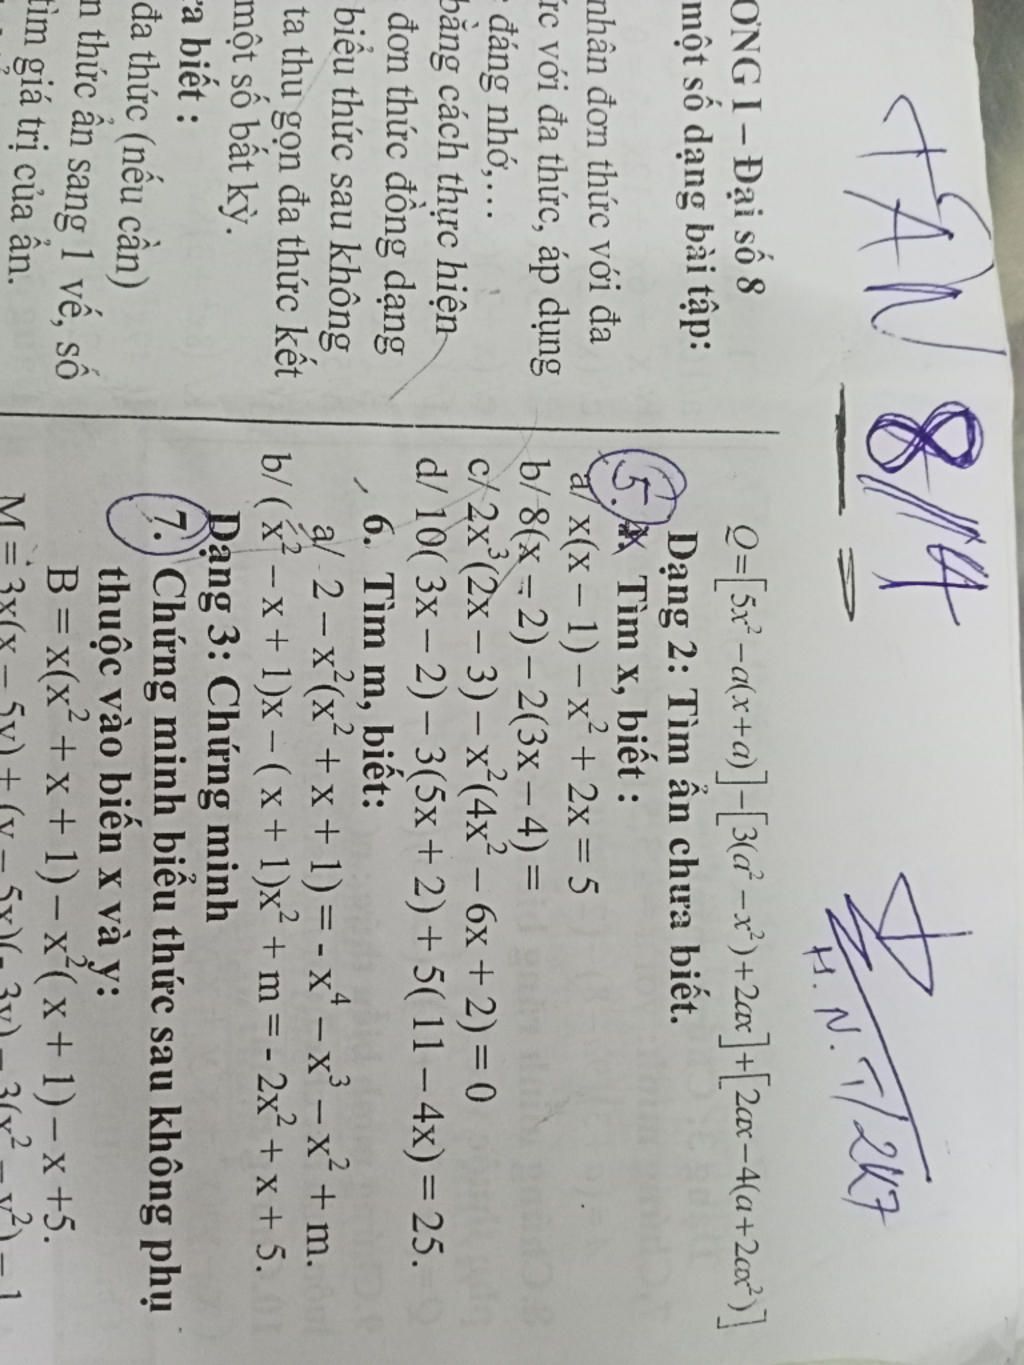 TÂN 8/14
H.N.T/2K7
ƠNG I – Đại số 8
một số dạng bài tập:
nhân đơn thức với đa
ức với đa thức, áp dụng
đáng nhớ,…
bằng cách thực hiện
đơn thức đồng dạng
biểu thức sau không
ta thu gọn đa thức kết
một số bất kỳ.
a biết :
đa thức (nếu cần)
n thức ẩn sang 1 vế, số
tìm giá trị của ẩn.
Q=[5x²–a(x+a)]–[3(a²–x²)+2ax]+[2ax–4(a+2ax²)]
Dạng 2: Tìm ẩn chưa biết.
5. Tìm x, biết :
a/ x(x – 1) – x² + 2x = 5
b/ 8(x – 2) – 2(3x – 4) =
c/ 2x³(2x – 3) – x²(4x² – 6x + 2) = 0
d/ 10( 3x – 2) – 3(5x + 2) + 5( 11 – 4x) = 25.
6. Tìm m, biết:
a/ 2 – x²(x² + x + 1) = - x⁴ – x³ – x² + m.
b/ ( x² – x + 1)x – ( x + 1)x² + m = - 2x² + x + 5.
Dạng 3: Chứng minh
7. Chứng minh biểu thức sau không phụ
thuộc vào biến x và y:
B = x(x² + x + 1) – x²( x + 1) – x +5.
M = 3x(x – 5y) + (y – 5x)(- 3y) – 3(x² – y²) – 1